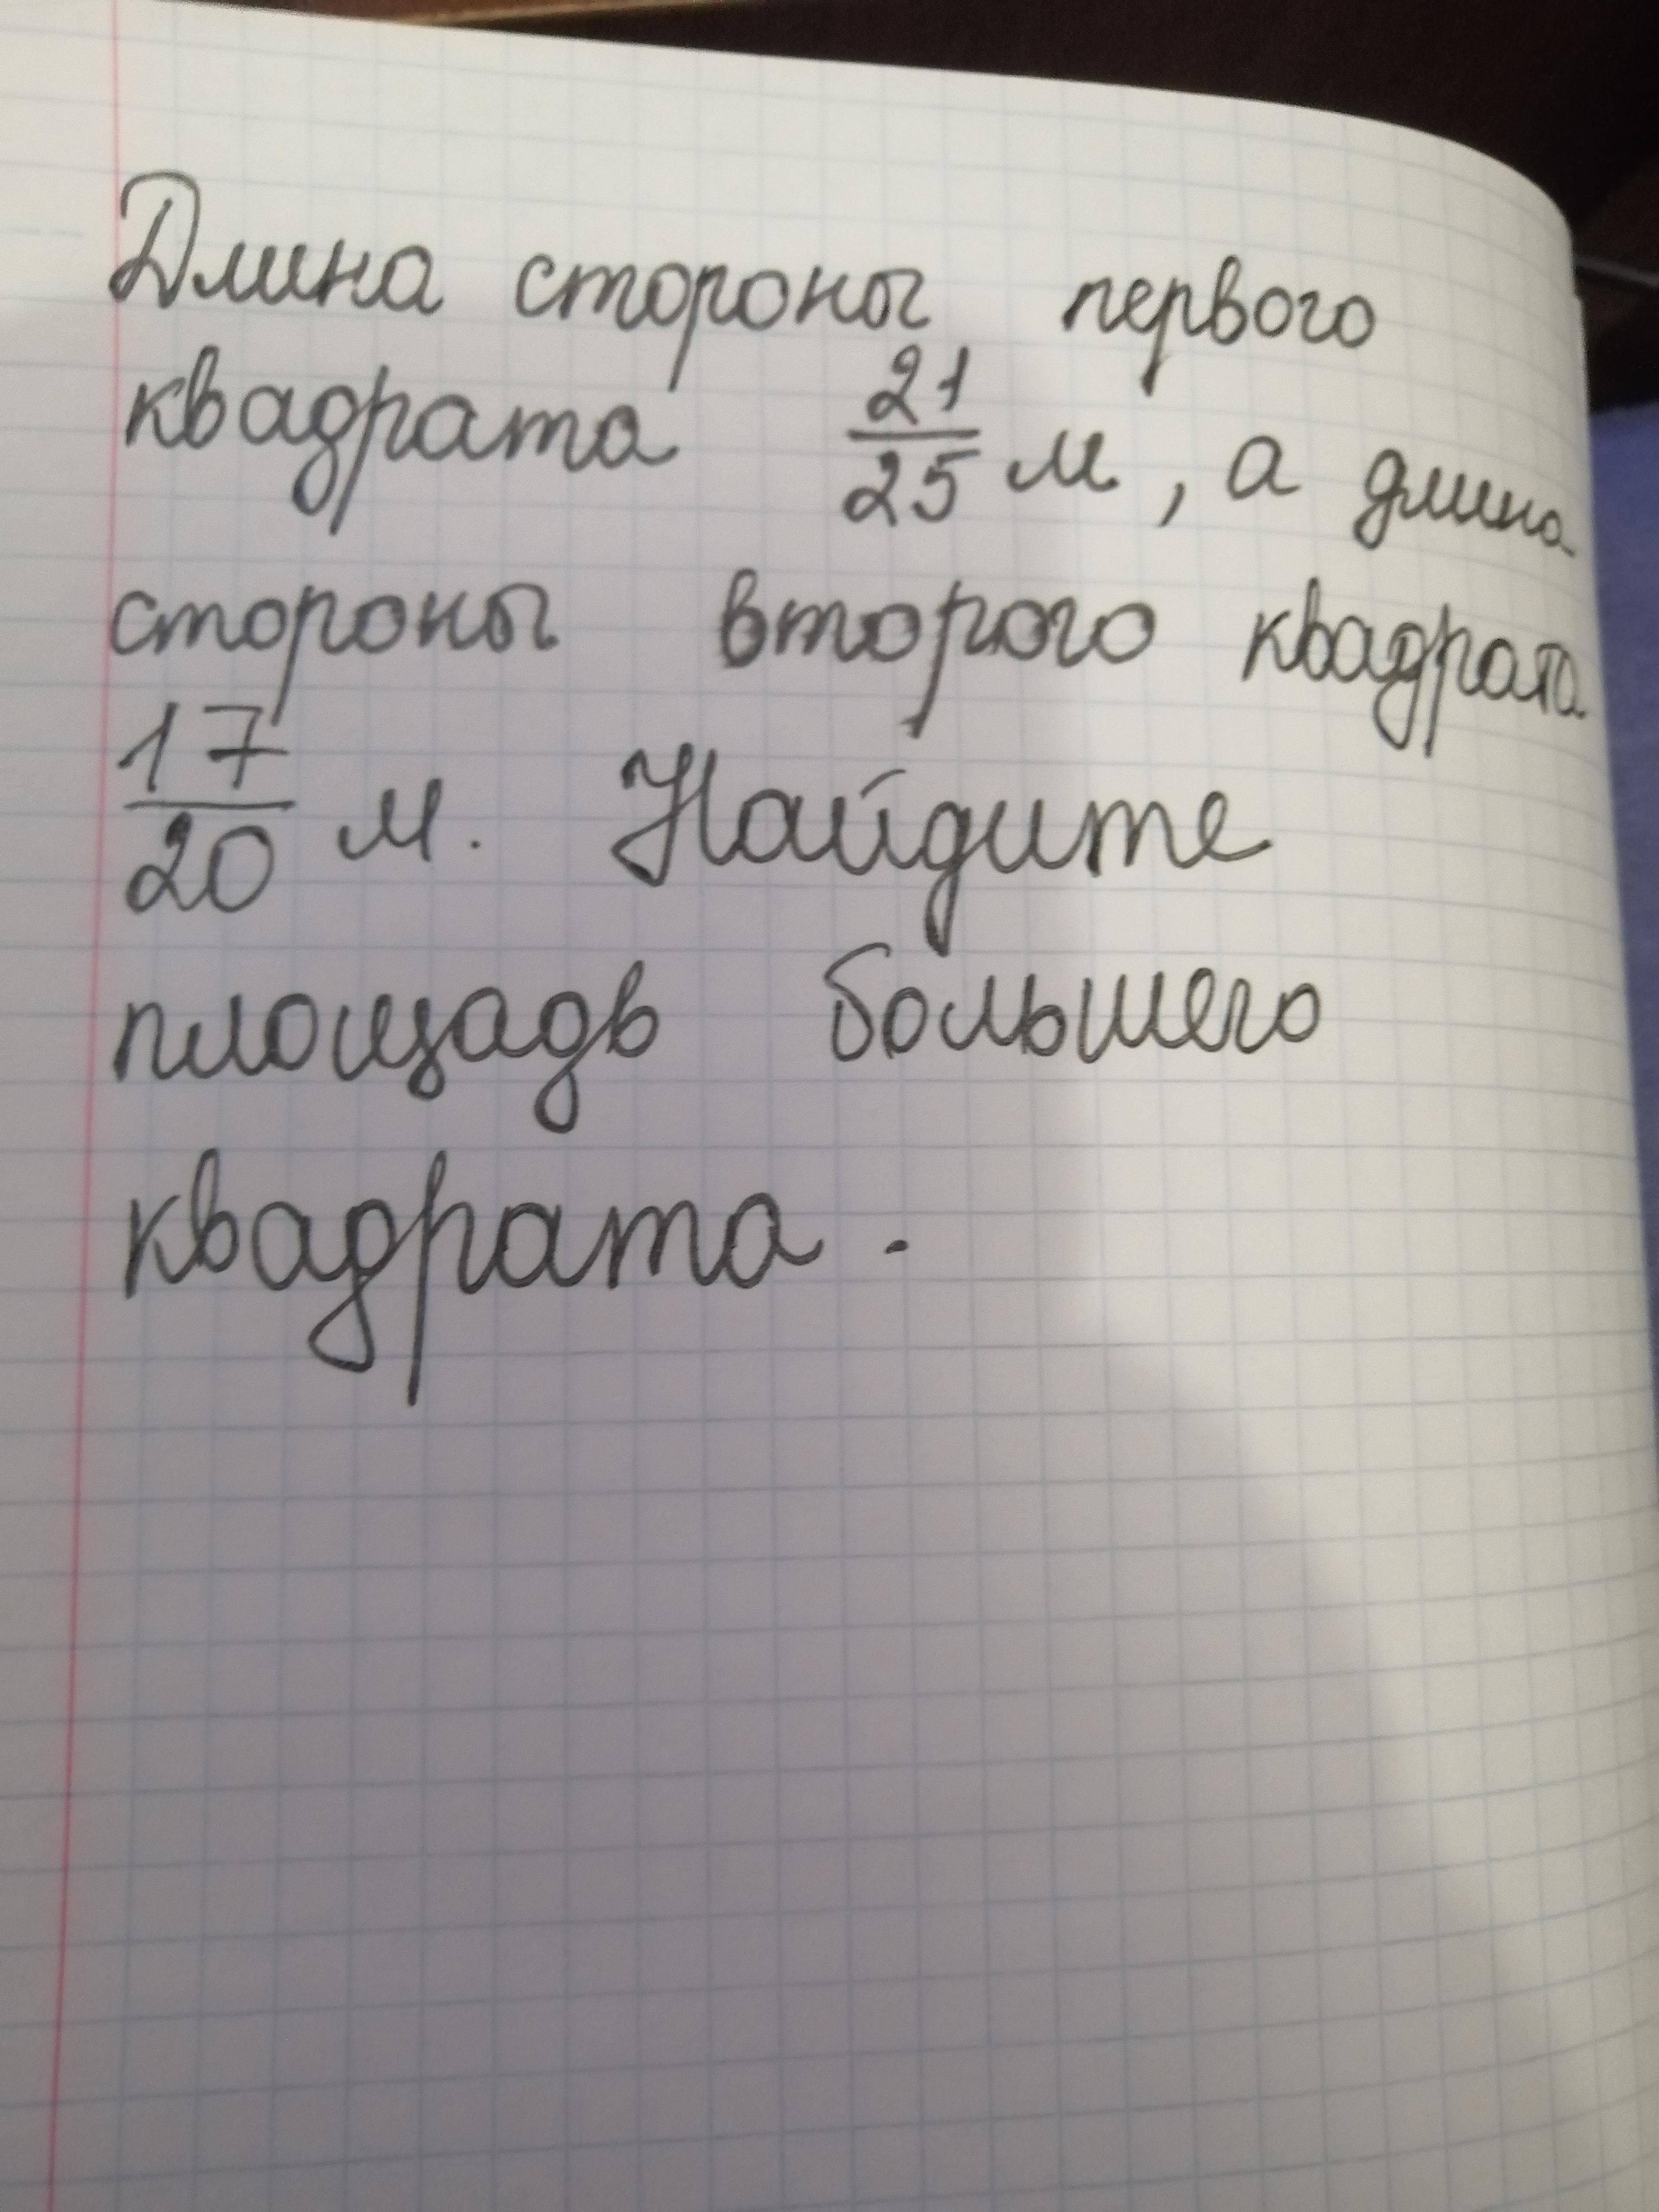 Длина стороны первого
квадрата 21/25 м, а длина
стороны второго квадрата
17/20 м. Найдите
площадь большего
квадрата.